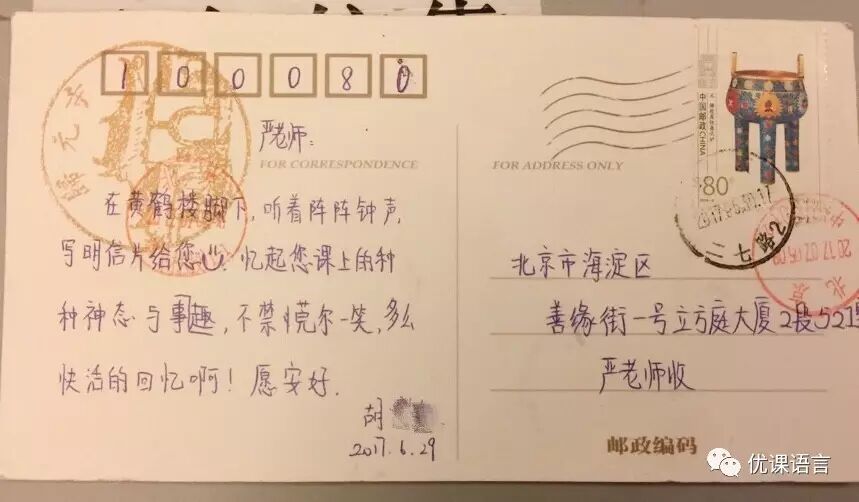 100080
严老师:
FOR CORRESPONDENCE
在黄鹤楼脚下,听着阵阵钟声,
写明信片给您☺. 忆起您课上的种
种神态与事趣,不禁惘尔一笑,多么
快活的回忆啊!愿安好.
胡
2017.6.29
FOR ADDRESS ONLY
中国邮政 CHINA
80
二七路
2017.07.05
北京
北京市海淀区
善缘街一号立方庭大厦2段521
严老师收
邮政编码
优课语言